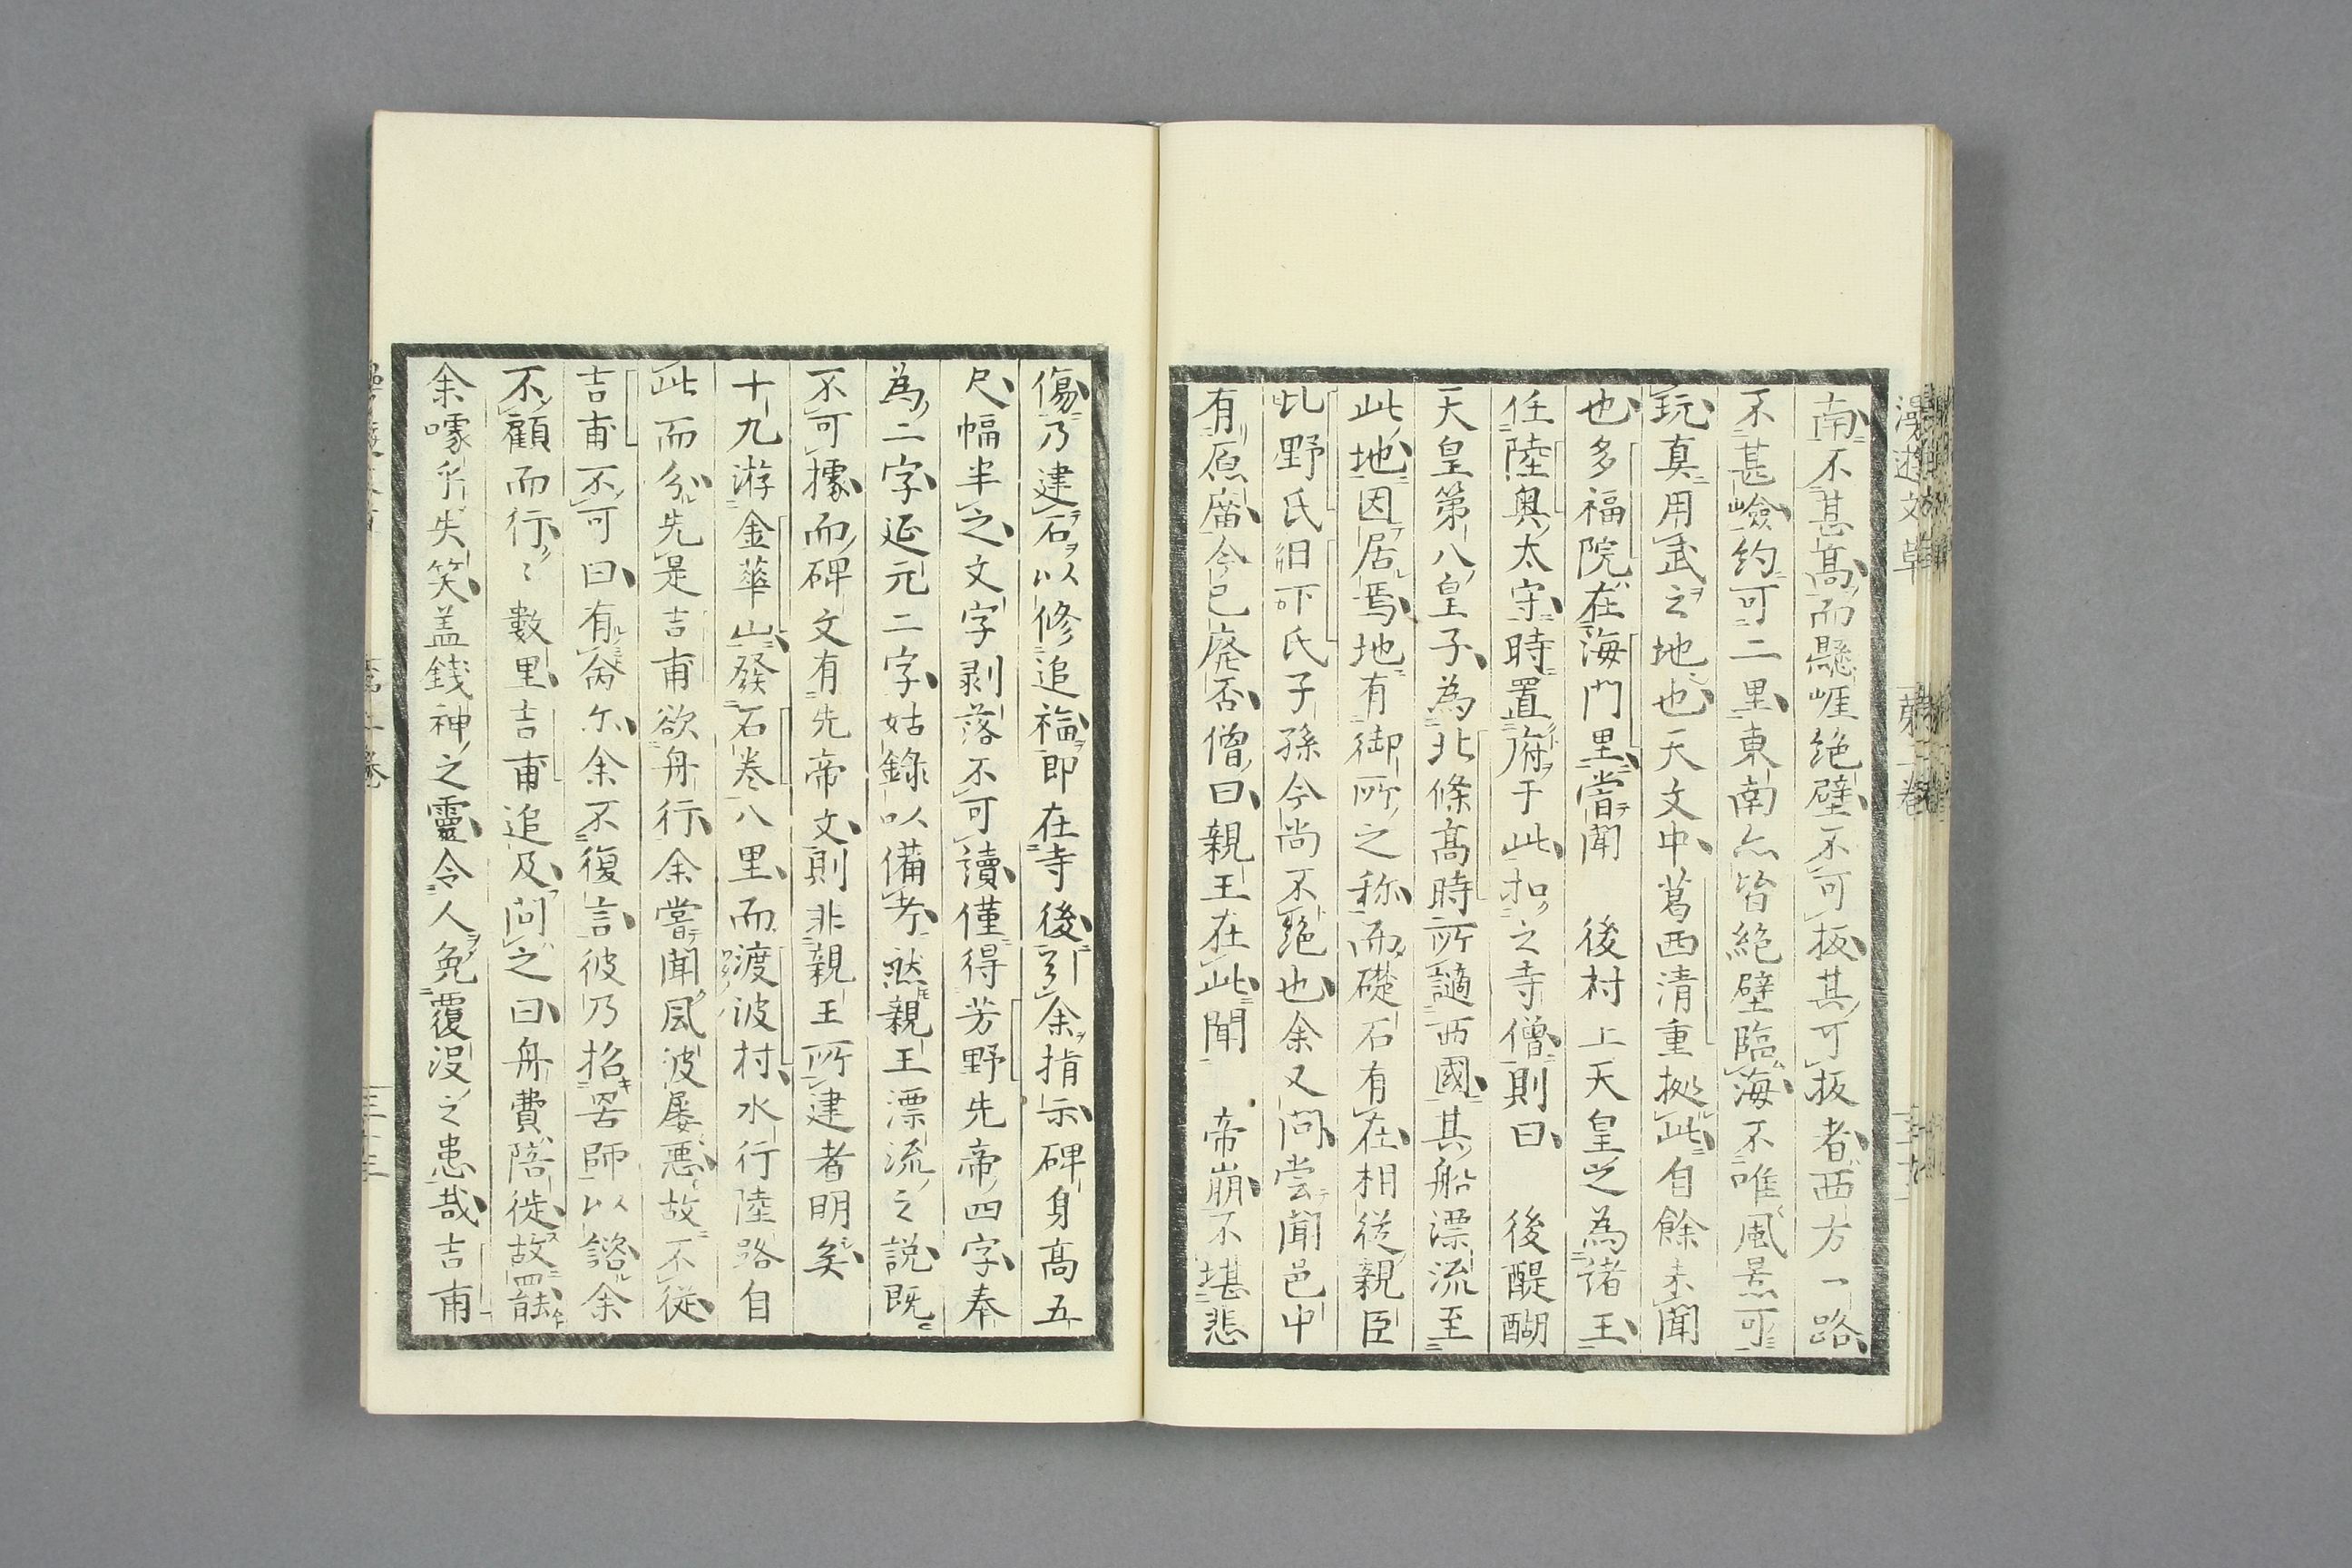 南不甚高而懸崕絶壁不可扳其可扳者西方一路
不甚嶮約可二里東南亦皆絶壁臨海不唯風景可
玩真用武之地也天文中葛西清重拠此自餘未聞
也多福院在海門里嘗聞　後村上天皇之為諸王
任陸奥太守時置府于此扣之寺僧則曰　後醍醐
天皇第八皇子為北條高時所謫西國其船漂流至
此地因居焉地有御所之称而礎石有在相從親臣
比野氏旧下氏子孫今尚不絶也余又問嘗聞邑中
有原廟今已廃否僧曰親王在此聞　帝崩不堪悲
傷乃建石以修追福即在寺後引余指示碑身高五
尺幅半之文字剥落不可讀僅得芳野先帝四字奉
為二字延元二字姑錄以備考然親王漂流之説既
不可據而碑文有先帝文則非親王所建者明矣
十九游金華山發石巻八里而渡波村水行陸路自
此而分先是吉甫欲舟行余嘗聞風波屡悪故不從
吉甫不可曰有命尓余不復言彼乃招罟師以諮余
不顧而行〻數里吉甫追及問之曰舟費陪徙故罷
余噱乎失笑盖錢神之靈令人免覆没之患哉吉甫
漫遊文草
第二巻